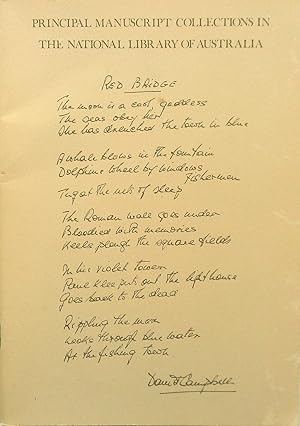 PRINCIPAL MANUSCRIPT COLLECTIONS IN
THE NATIONAL LIBRARY OF AUSTRALIA
RED BRIDGE
The moon is a cool goddess
The seas obey her
She has drenched the town in blue
A whale blows in the fountain
Dolphins wheel by windows
Fishermen
Tug at the nets of sleep
The Roman wall goes under
Bloodied with memories
Keels plough the square fields
In his violet tower
Paul Klee puts out the lighthouse
Goes back to the dead
Rippling the moon
Looks through blue water
At the fishing town
David Campbell